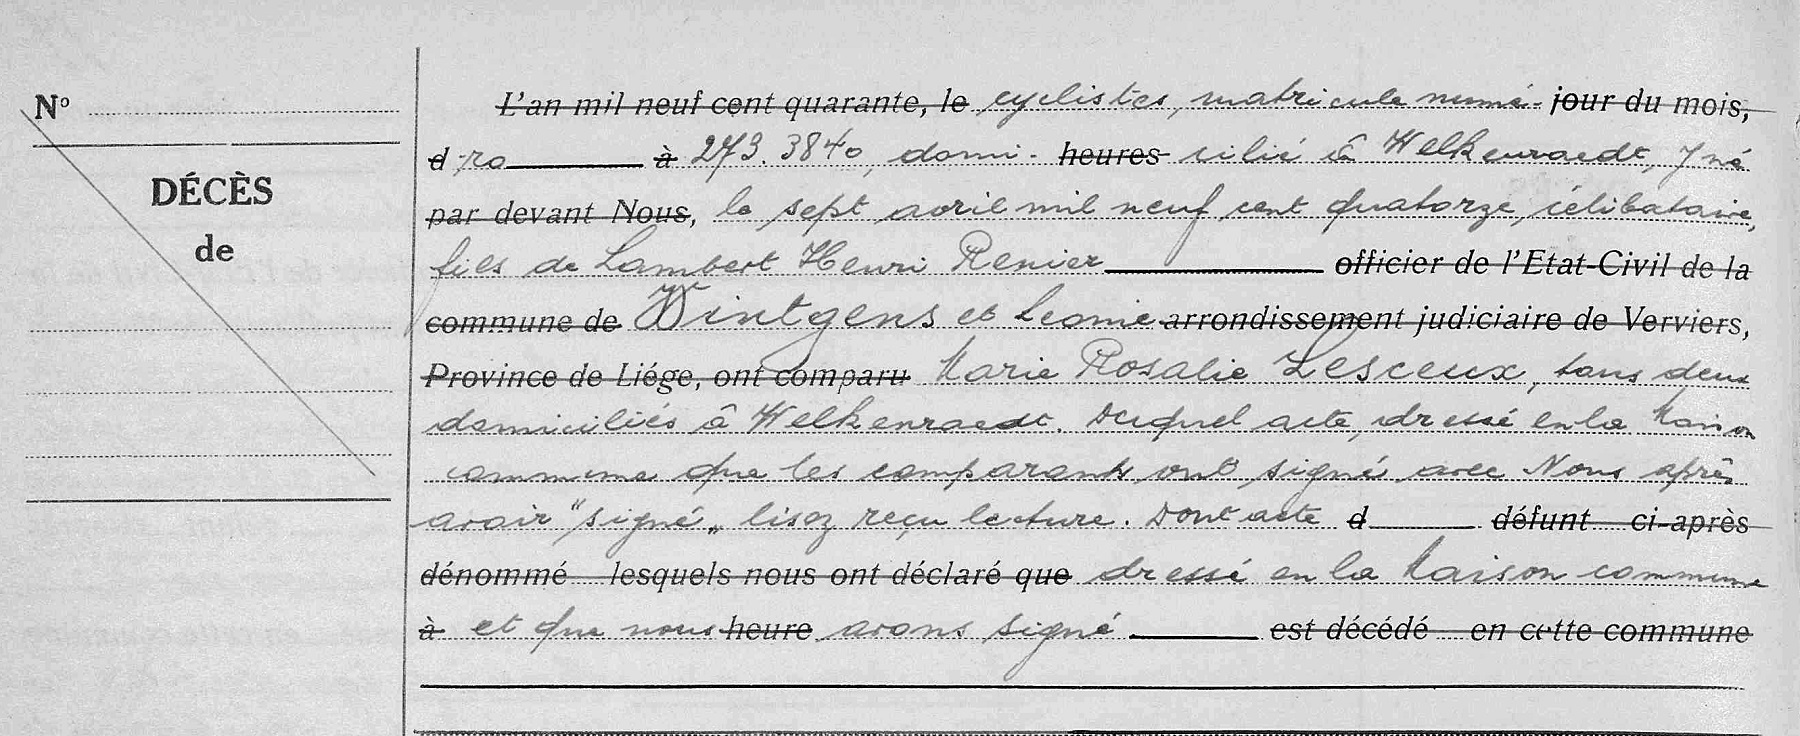 N°
DÉCÈS
de
L'an mil neuf cent quarante, le cyclistes, matricule numé- jour du mois,
d ro à 273.3840, domi- heures cilié à Welkenraedt, y né
par devant Nous, le sept avril mil neuf cent quatorze, célibataire,
fils de Lambert Henri Renier officier de l'Etat-Civil de la
commune de Wintgens et Leonie arrondissement judiciaire de Verviers,
Province de Liége, ont comparu Marie Rosalie Lesceux, tous deux
domiciliés à Welkenraedt. Duquel acte, dressé en la Maison
commune que les comparants ont signé avec Nous après
avoir "signé„ lisez reçu lecture. Dont acte d défunt ci-après
dénommé lesquels nous ont déclaré que dressé en la Maison commune
à et que nous heure avons signé est décédé en cette commune